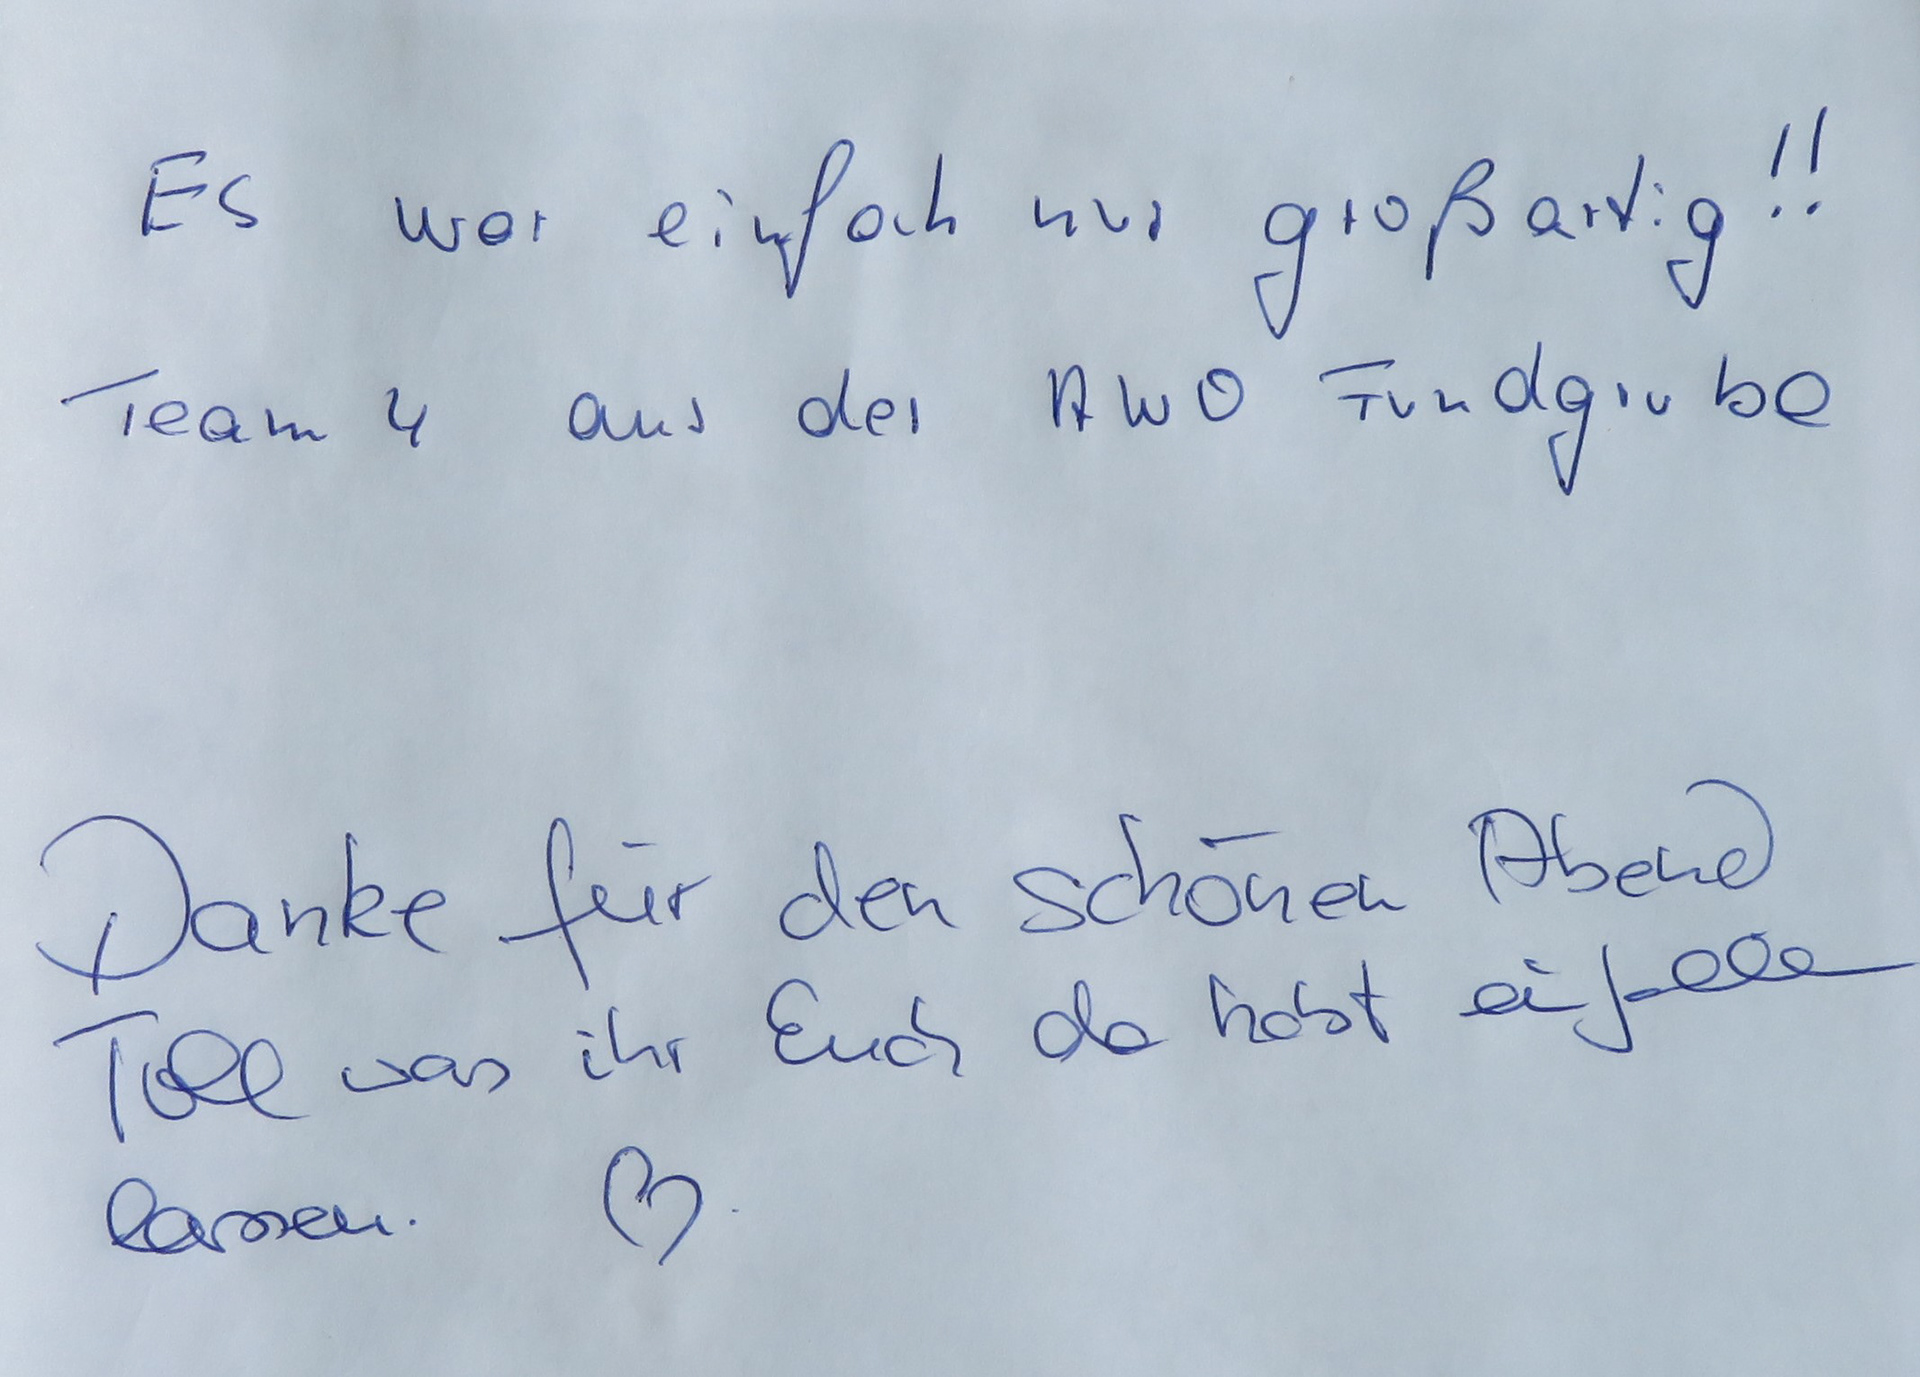 Es war einfach nur großartig!!
Team 4 aus der AWO Fundgrube
Danke für den schönen Abend
Toll was ihr Euch da habt einfallen
lassen.